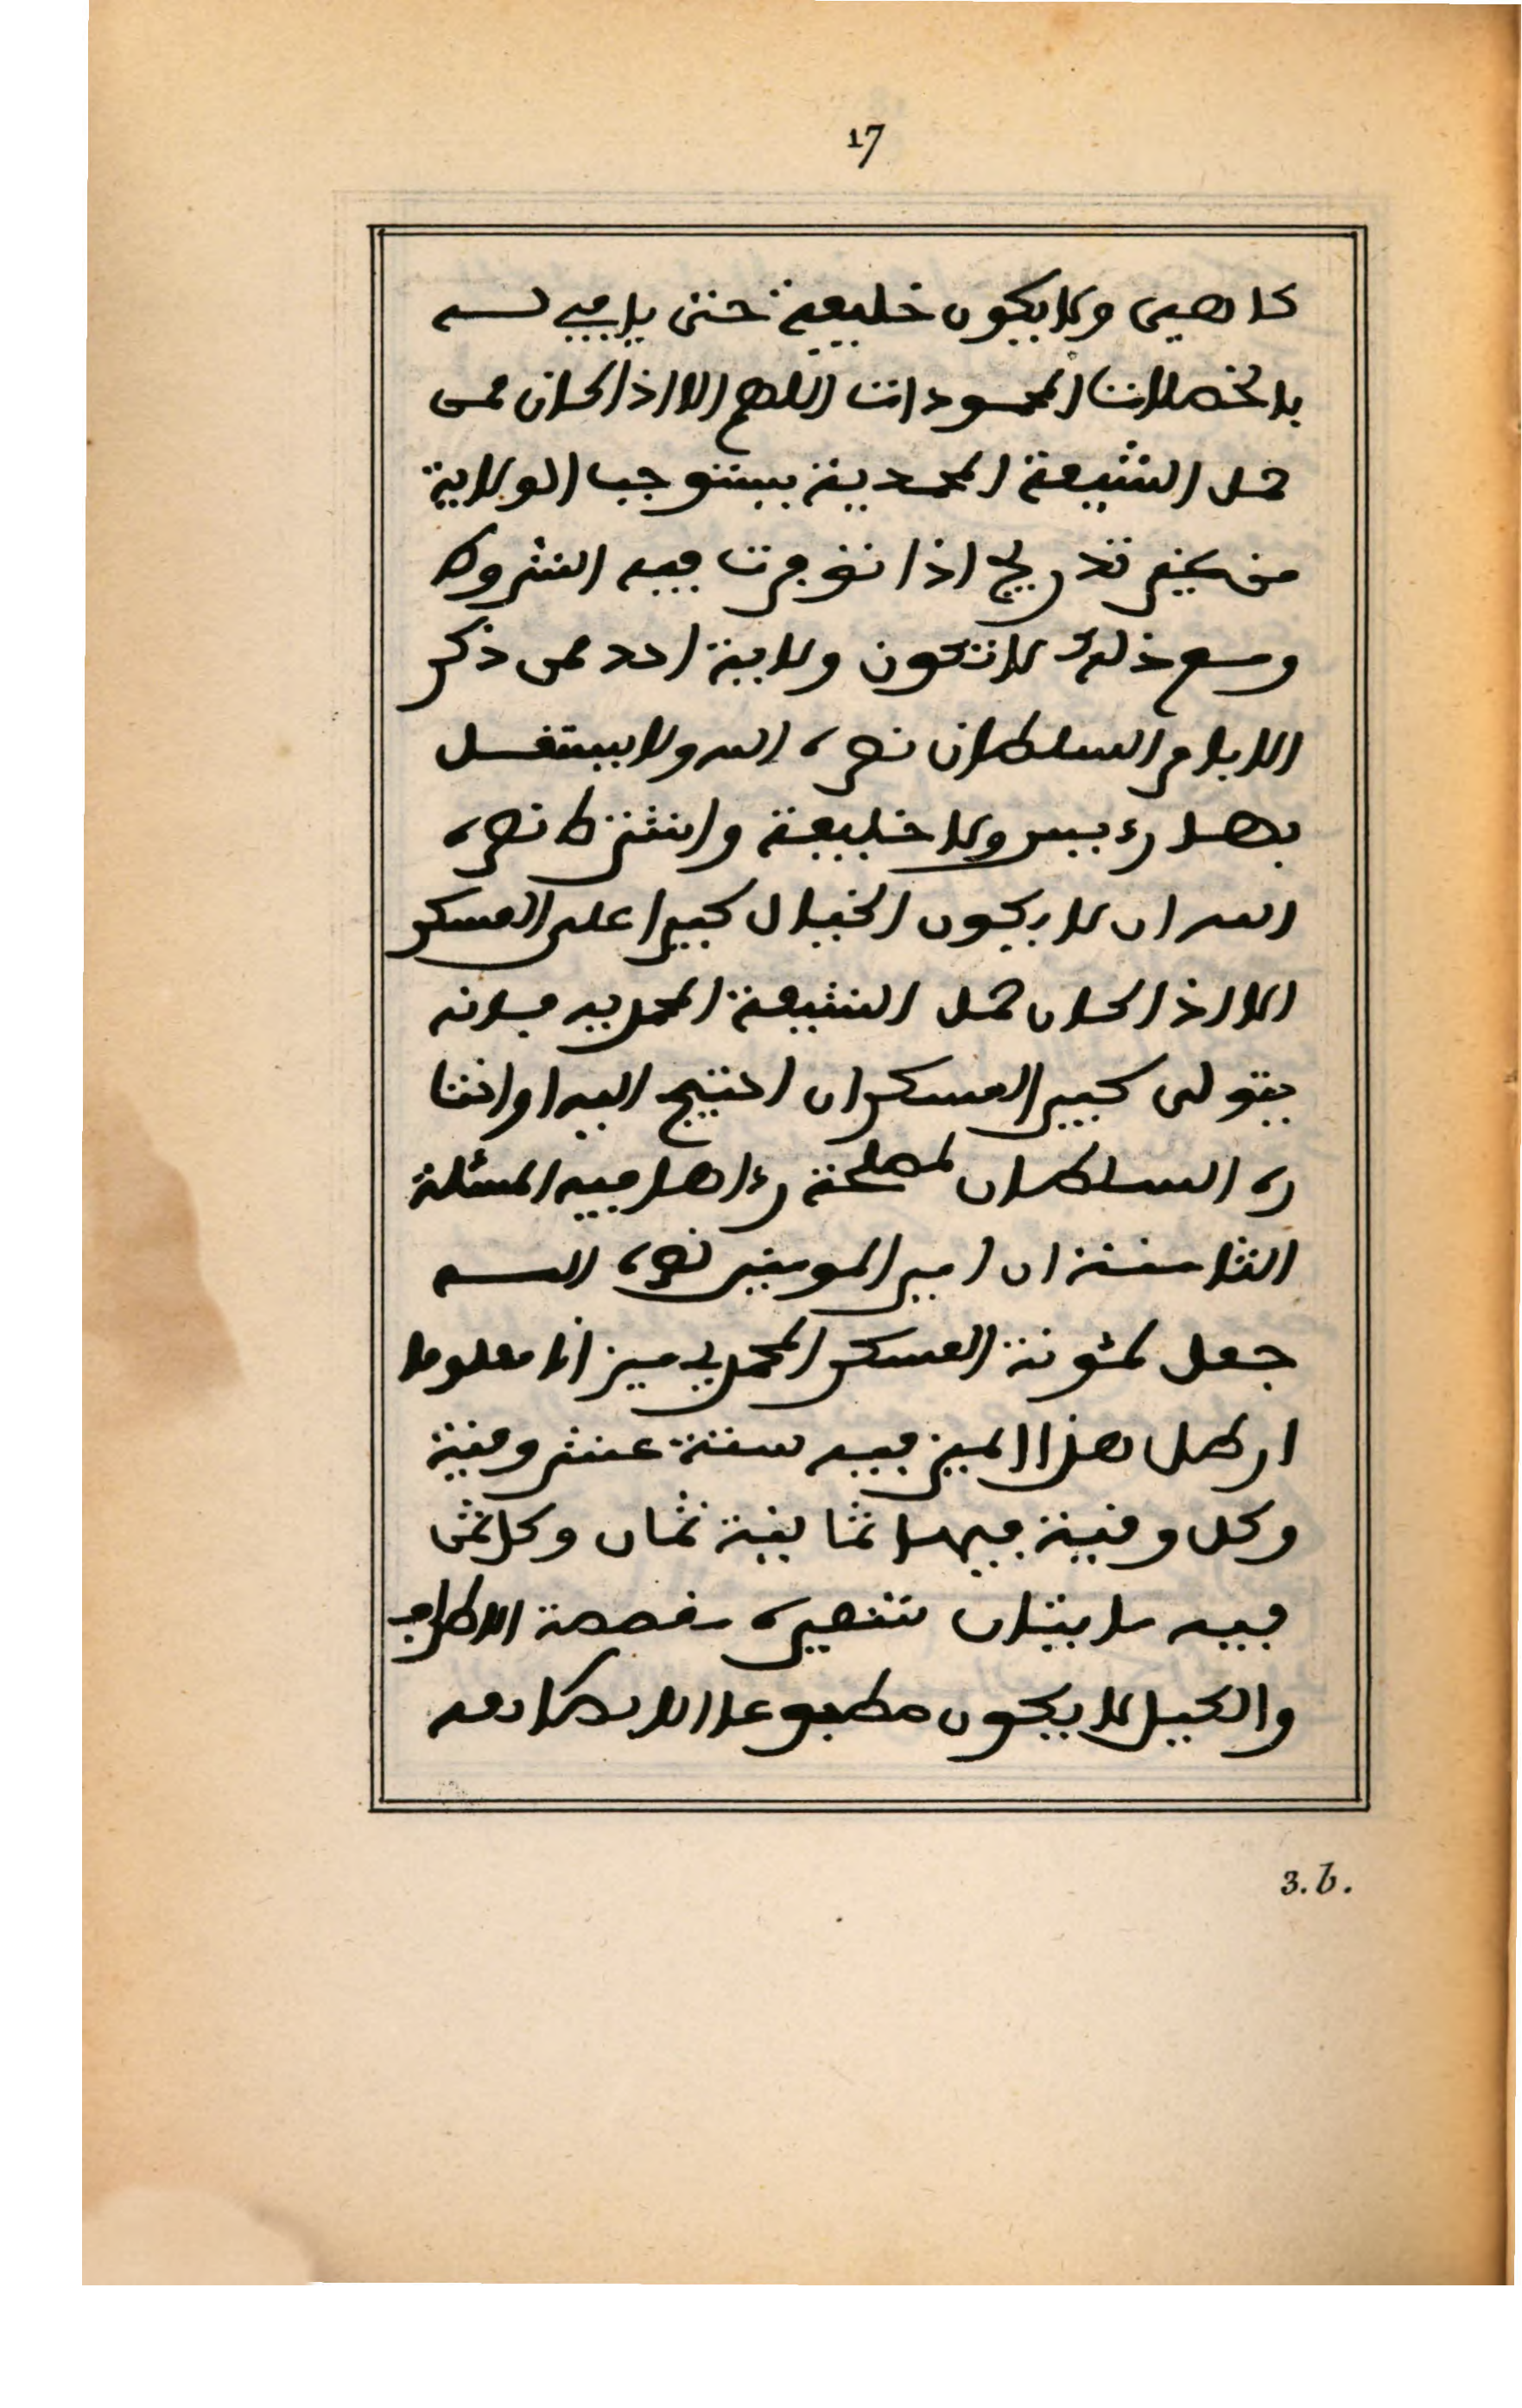 17
كاهيى ولا يكون خليفة حتى ياتي له
بالخصلات المحمودات اللهم الا اذا كان ممن
حمل الشيعة المحمدية يستوجب الولاية
من غير تدريج اذا توفرت فيه الشروط
ومع ذلك لا تكون ولاية احد ممن ذكر
الا بامر السلطان نصره الله ولا يستقل
بها رءيس ولا خليفة واشترط نصره
الله ان لا يكون الخيال كبيرا على العسكر
الا اذا كان حمل الشيعة المحمدية فانه
يتولى كبير العسكر ان احتيج اليه او اختا
ره السلطان لمصلحة رءاها فيه المسئلة
الثامنة ان امير المومنين نصره الله
جعل لمئونة العسكر المحمدي ميزانا معلوما
ارطل هذا الميز فيه ستة عشر وقية
وكل وقية فيها ثمانية ثمان وكل ثمن
فيه مايتان شعيرة مقصصة الاطراف
والكيل لا يكون مطبوعا الا
3.b.